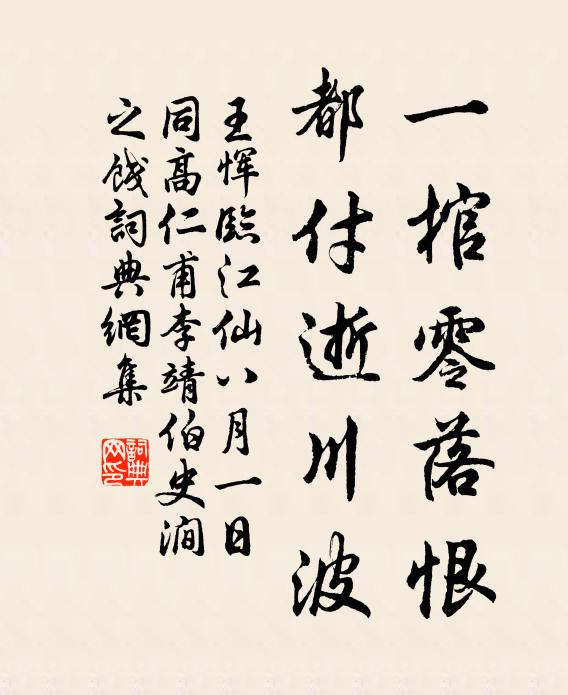 一棺零落恨
都付逝川波
王惲臨江仙八月一日
同高仁甫李靖伯史澗
之餞詞典網集
詞典網印